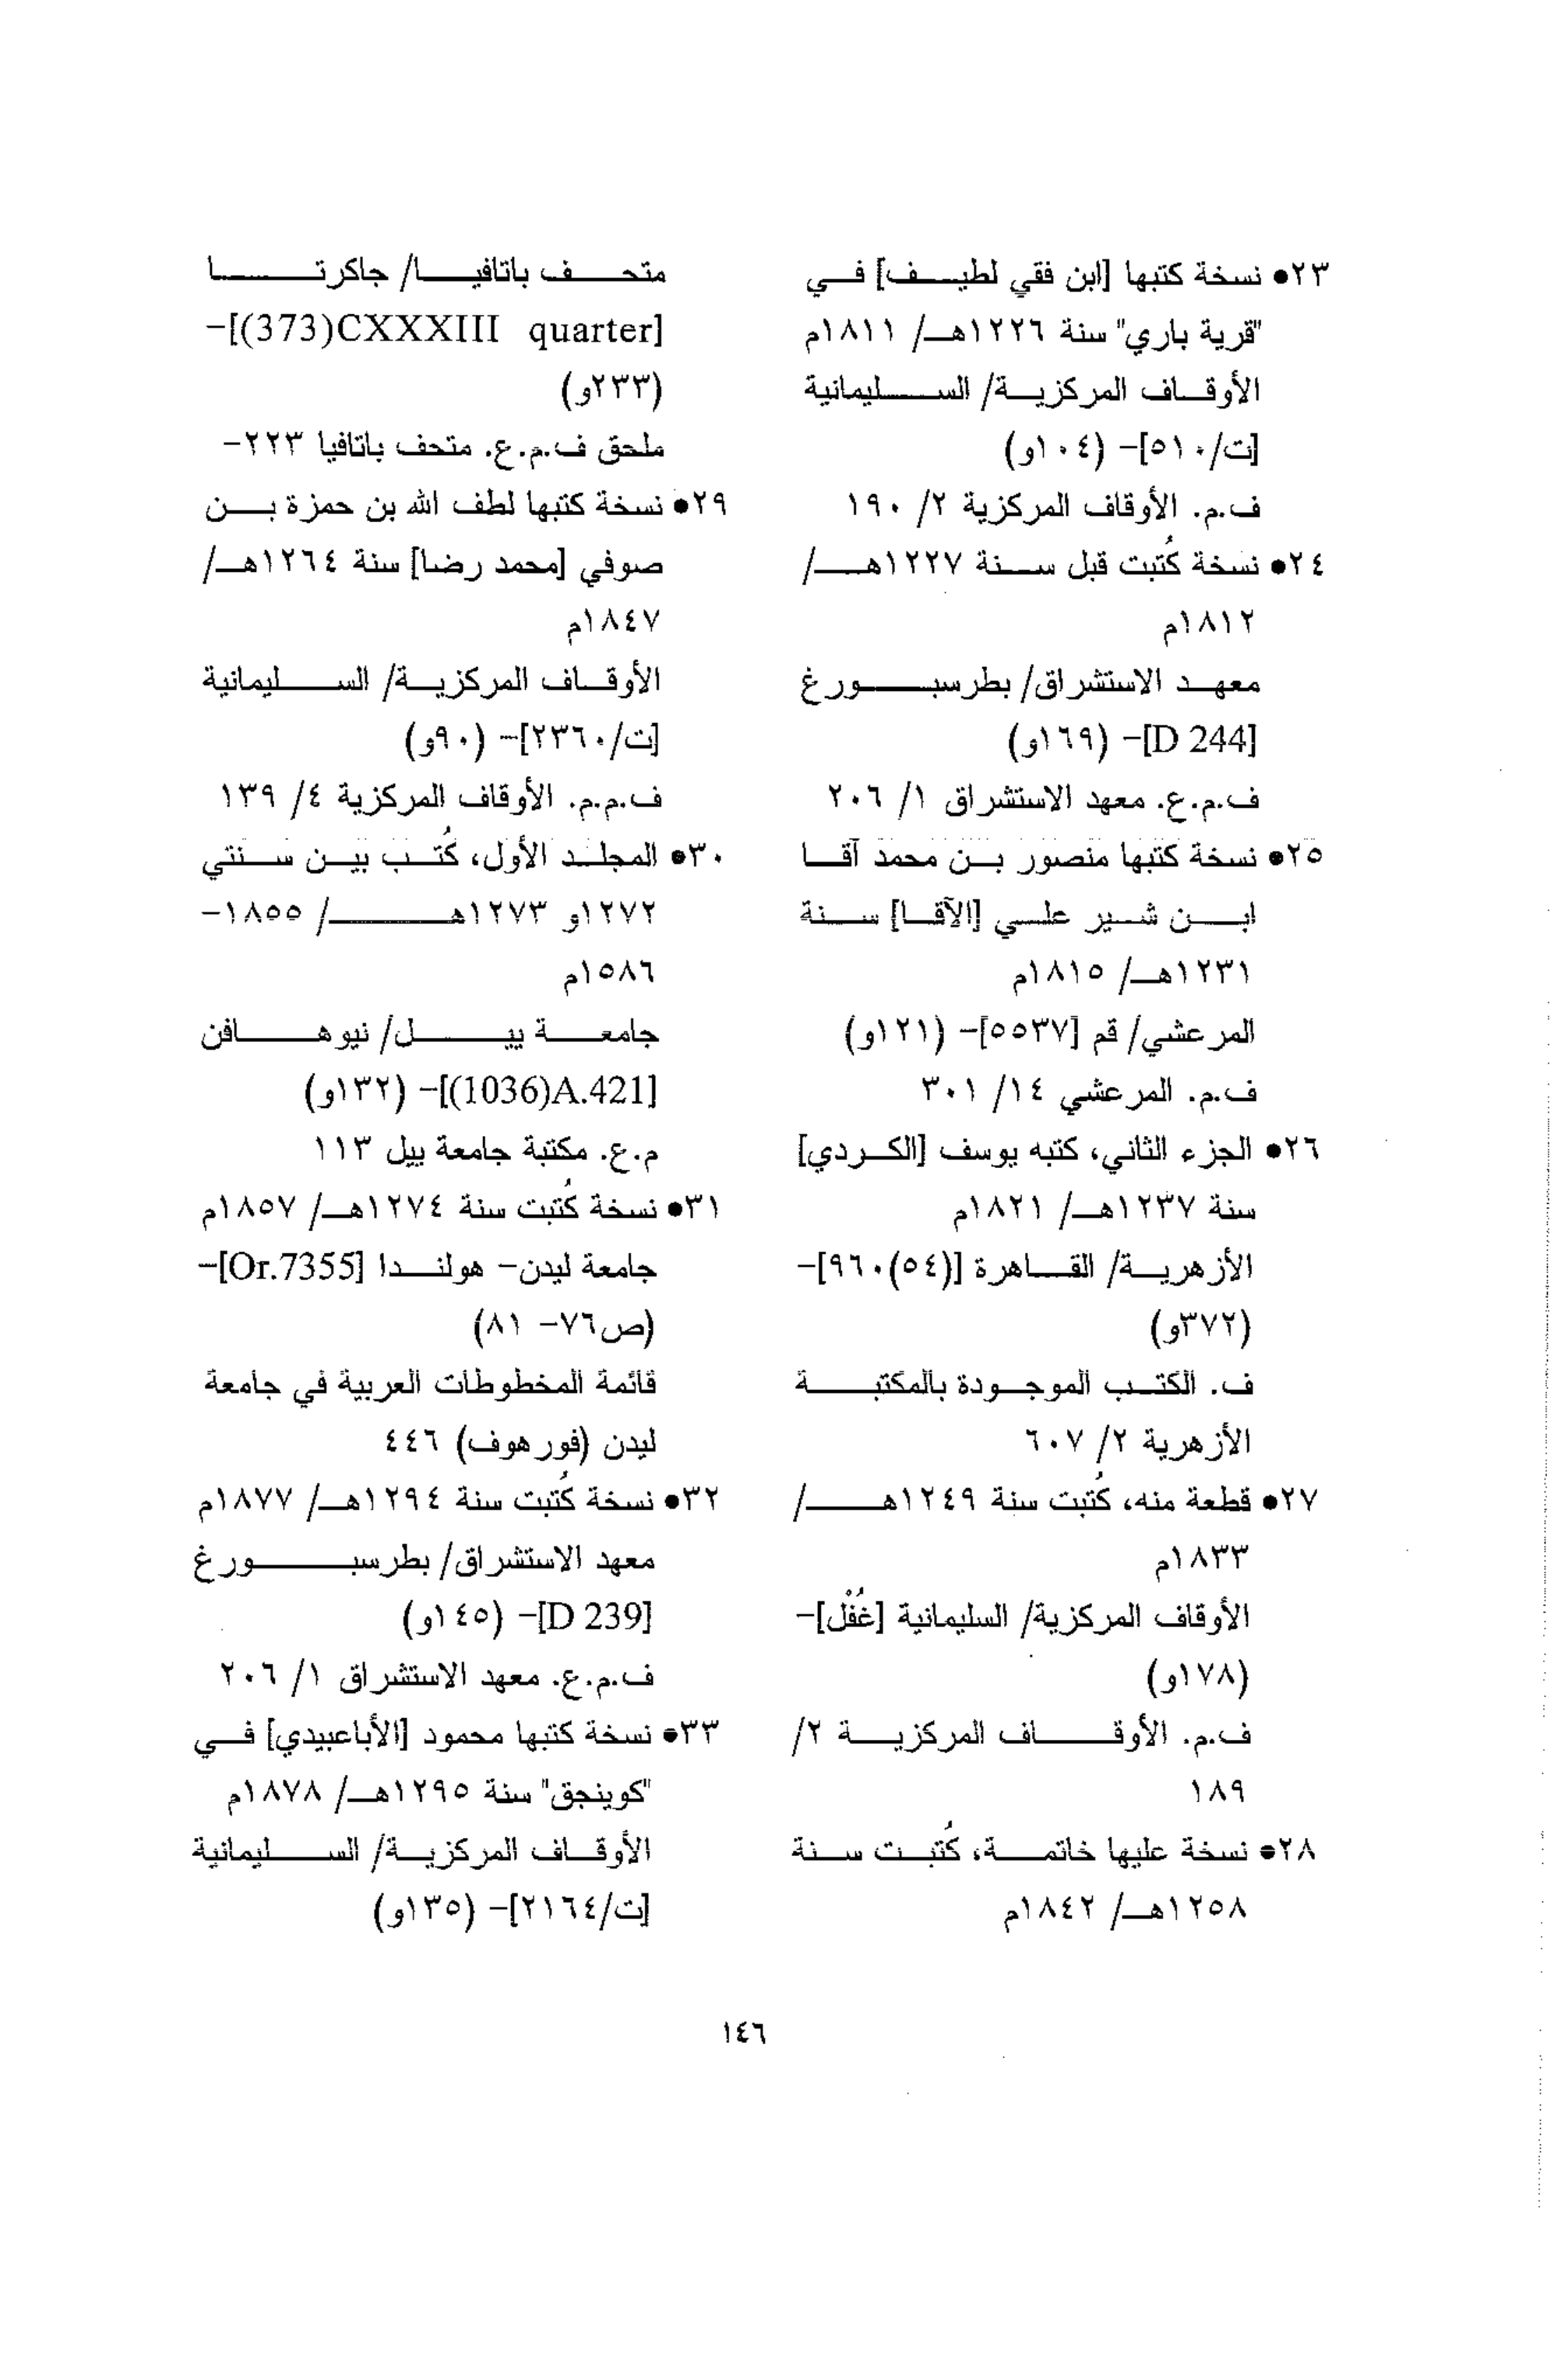 ٢٣● نسخة كتبها [ابن فقي لطيف] في
"قرية باري" سنة ١٢٢٦هـ/ ١٨١١م
الأوقاف المركزية/ السليمانية
[ت/٥١٠]- (١٠٤و)
ف.م. الأوقاف المركزية ٢/ ١٩٠
٢٤● نسخة كُتبت قبل سنة ١٢٢٧هـ/
١٨١٢م
معهد الاستشراق/ بطرسبورغ
[D 244]- (١٦٩و)
ف.م.ع. معهد الاستشراق ١/ ٢٠٦
٢٥● نسخة كتبها منصور بن محمد آقا
ابن شير علي [الآقا] سنة
١٢٣١هـ/ ١٨١٥م
المرعشي/ قم [٥٥٣٧]- (١٢١و)
ف.م. المرعشي ١٤/ ٣٠١
٢٦● الجزء الثاني، كتبه يوسف [الكردي]
سنة ١٢٣٧هـ/ ١٨٢١م
الأزهرية/ القاهرة [(٥٤)٩٦٠]-
(٣٧٢و)
ف. الكتب الموجودة بالمكتبة
الأزهرية ٢/ ٦٠٧
٢٧● قطعة منه، كُتبت سنة ١٢٤٩هـ/
١٨٣٣م
الأوقاف المركزية/ السليمانية [غُفْل]-
(١٧٨و)
ف.م. الأوقاف المركزية ٢/
١٨٩
٢٨● نسخة عليها خاتمة، كُتبت سنة
١٢٥٨هـ/ ١٨٤٢م
متحف باتافيا/ جاكرتا
[(373)CXXXIII quarter]-
(٢٣٣و)
ملحق ف.م.ع. متحف باتافيا ٢٢٣-
٢٩● نسخة كتبها لطف الله بن حمزة بن
صوفي [محمد رضا] سنة ١٢٦٤هـ/
١٨٤٧م
الأوقاف المركزية/ السليمانية
[ت/٢٣٦٠]- (٩٠و)
ف.م.م. الأوقاف المركزية ٤/ ١٣٩
٣٠● المجلد الأول، كُتب بين سنتي
١٢٧٢و ١٢٧٣هـ/ ١٨٥٥-
١٥٨٦م
جامعة ييل/ نيوهافن
[(1036)A.421]- (١٣٢و)
م.ع. مكتبة جامعة ييل ١١٣
٣١● نسخة كُتبت سنة ١٢٧٤هـ/ ١٨٥٧م
جامعة ليدن- هولندا [Or.7355]-
(ص٧٦- ٨١)
قائمة المخطوطات العربية في جامعة
ليدن (فورهوف) ٤٤٦
٣٢● نسخة كُتبت سنة ١٢٩٤هـ/ ١٨٧٧م
معهد الاستشراق/ بطرسبورغ
[D 239]- (١٤٥و)
ف.م.ع. معهد الاستشراق ١/ ٢٠٦
٣٣● نسخة كتبها محمود [الأباعبيدي] في
"كوينجق" سنة ١٢٩٥هـ/ ١٨٧٨م
الأوقاف المركزية/ السليمانية
[ت/٢١٦٤]- (١٣٥و)
١٤٦